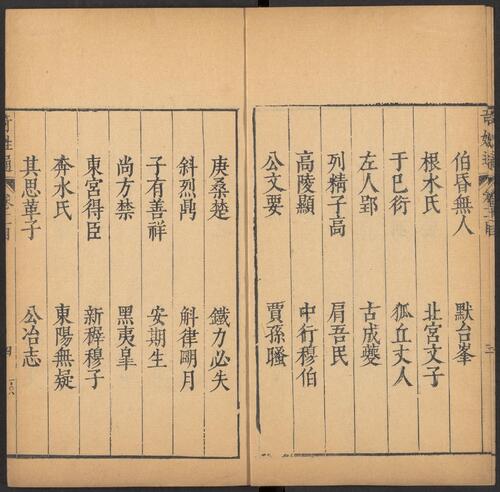 伯昏無人 默台峯
根水氏 北宮文子
于已衍 狐丘丈人
左人郢 古成䕫
列精子高 肩吾民
高陵顯 中行穆伯
公文要 賈孫騷
庚桑楚 鐵力必失
斜烈鼎 斛律明月
子有善祥 安期生
尚方禁 黑夷皐
東宮得臣 新穉穆子
奔水氏 東陽無疑
其思革子 公冶志
奇姓通